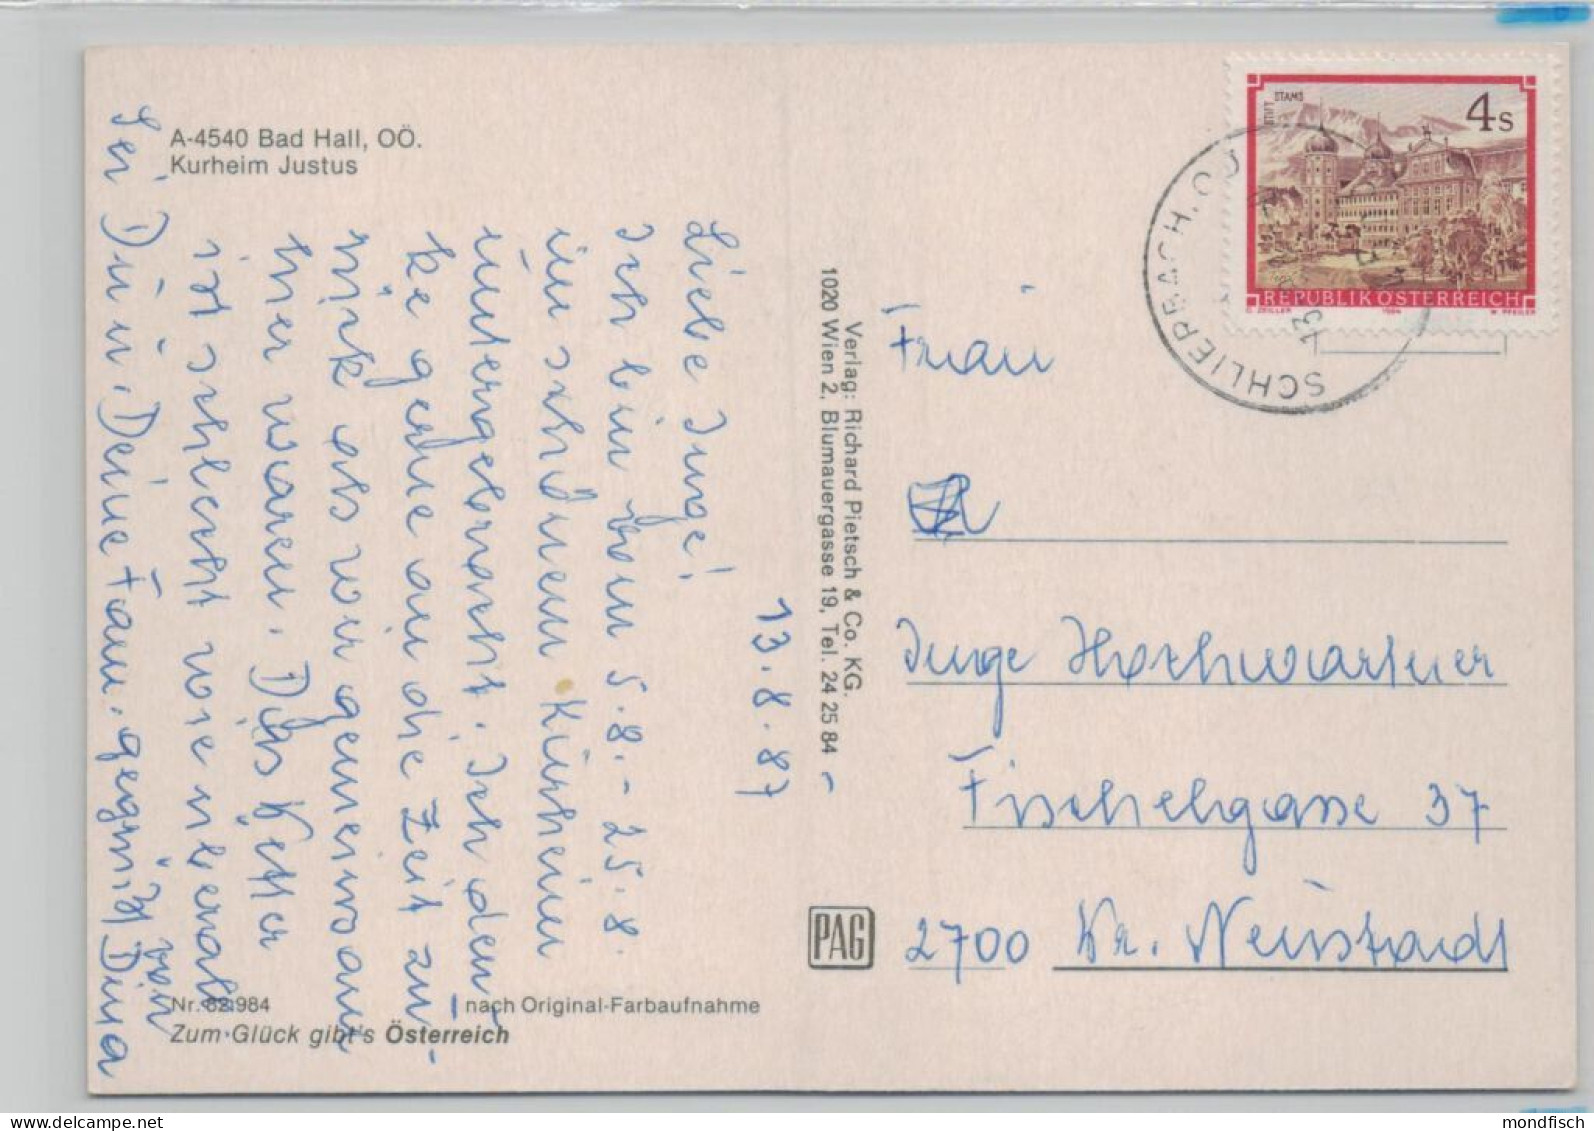 A-4540 Bad Hall, OÖ.
Kurheim Justus
13.8.87
Liebe Inge!
Ich bin vom 5.8.-25.8.
im schönen Kurheim
untergebracht. Ich den-
ke gerne an die Zeit zu-
rück als wir gemeinsam
hier waren. Das Wetter
ist schlecht wie überall
Sei Du u. Deine Fam. gegrüßt von
Dina
Nr. 82.984
nach Original-Farbaufnahme
Zum Glück gibt's Österreich
Verlag: Richard Pietsch & Co. KG.
1020 Wien 2, Blumauergasse 19, Tel. 24 25 84
PAG
STIFT STAMS
4 S
REPUBLIK ÖSTERREICH
O. ZEILLER 1984 W. PFEILER
SCHLIERBACH, OÖ
13
Frau
Inge Hochwartner
Fischelgasse 37
2700 Wr. Neustadt
mondfisch